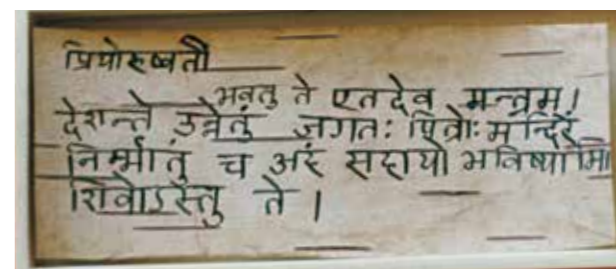 प्रियोरुष्वती
भवतु ते एतदेव मन्त्रम्।
देशान्ते उन्नेतुं जगतः पित्रोः मन्दिरं
निर्म्मातुं च अहं सहायो भविष्यामि
शिवोऽस्तु ते ।